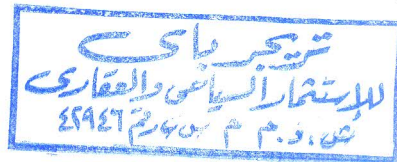 تريجر باى
للإستثمار السياحى والعقارى
ش.ذ.م.م س.ت رقم ٤٢٩٤٦